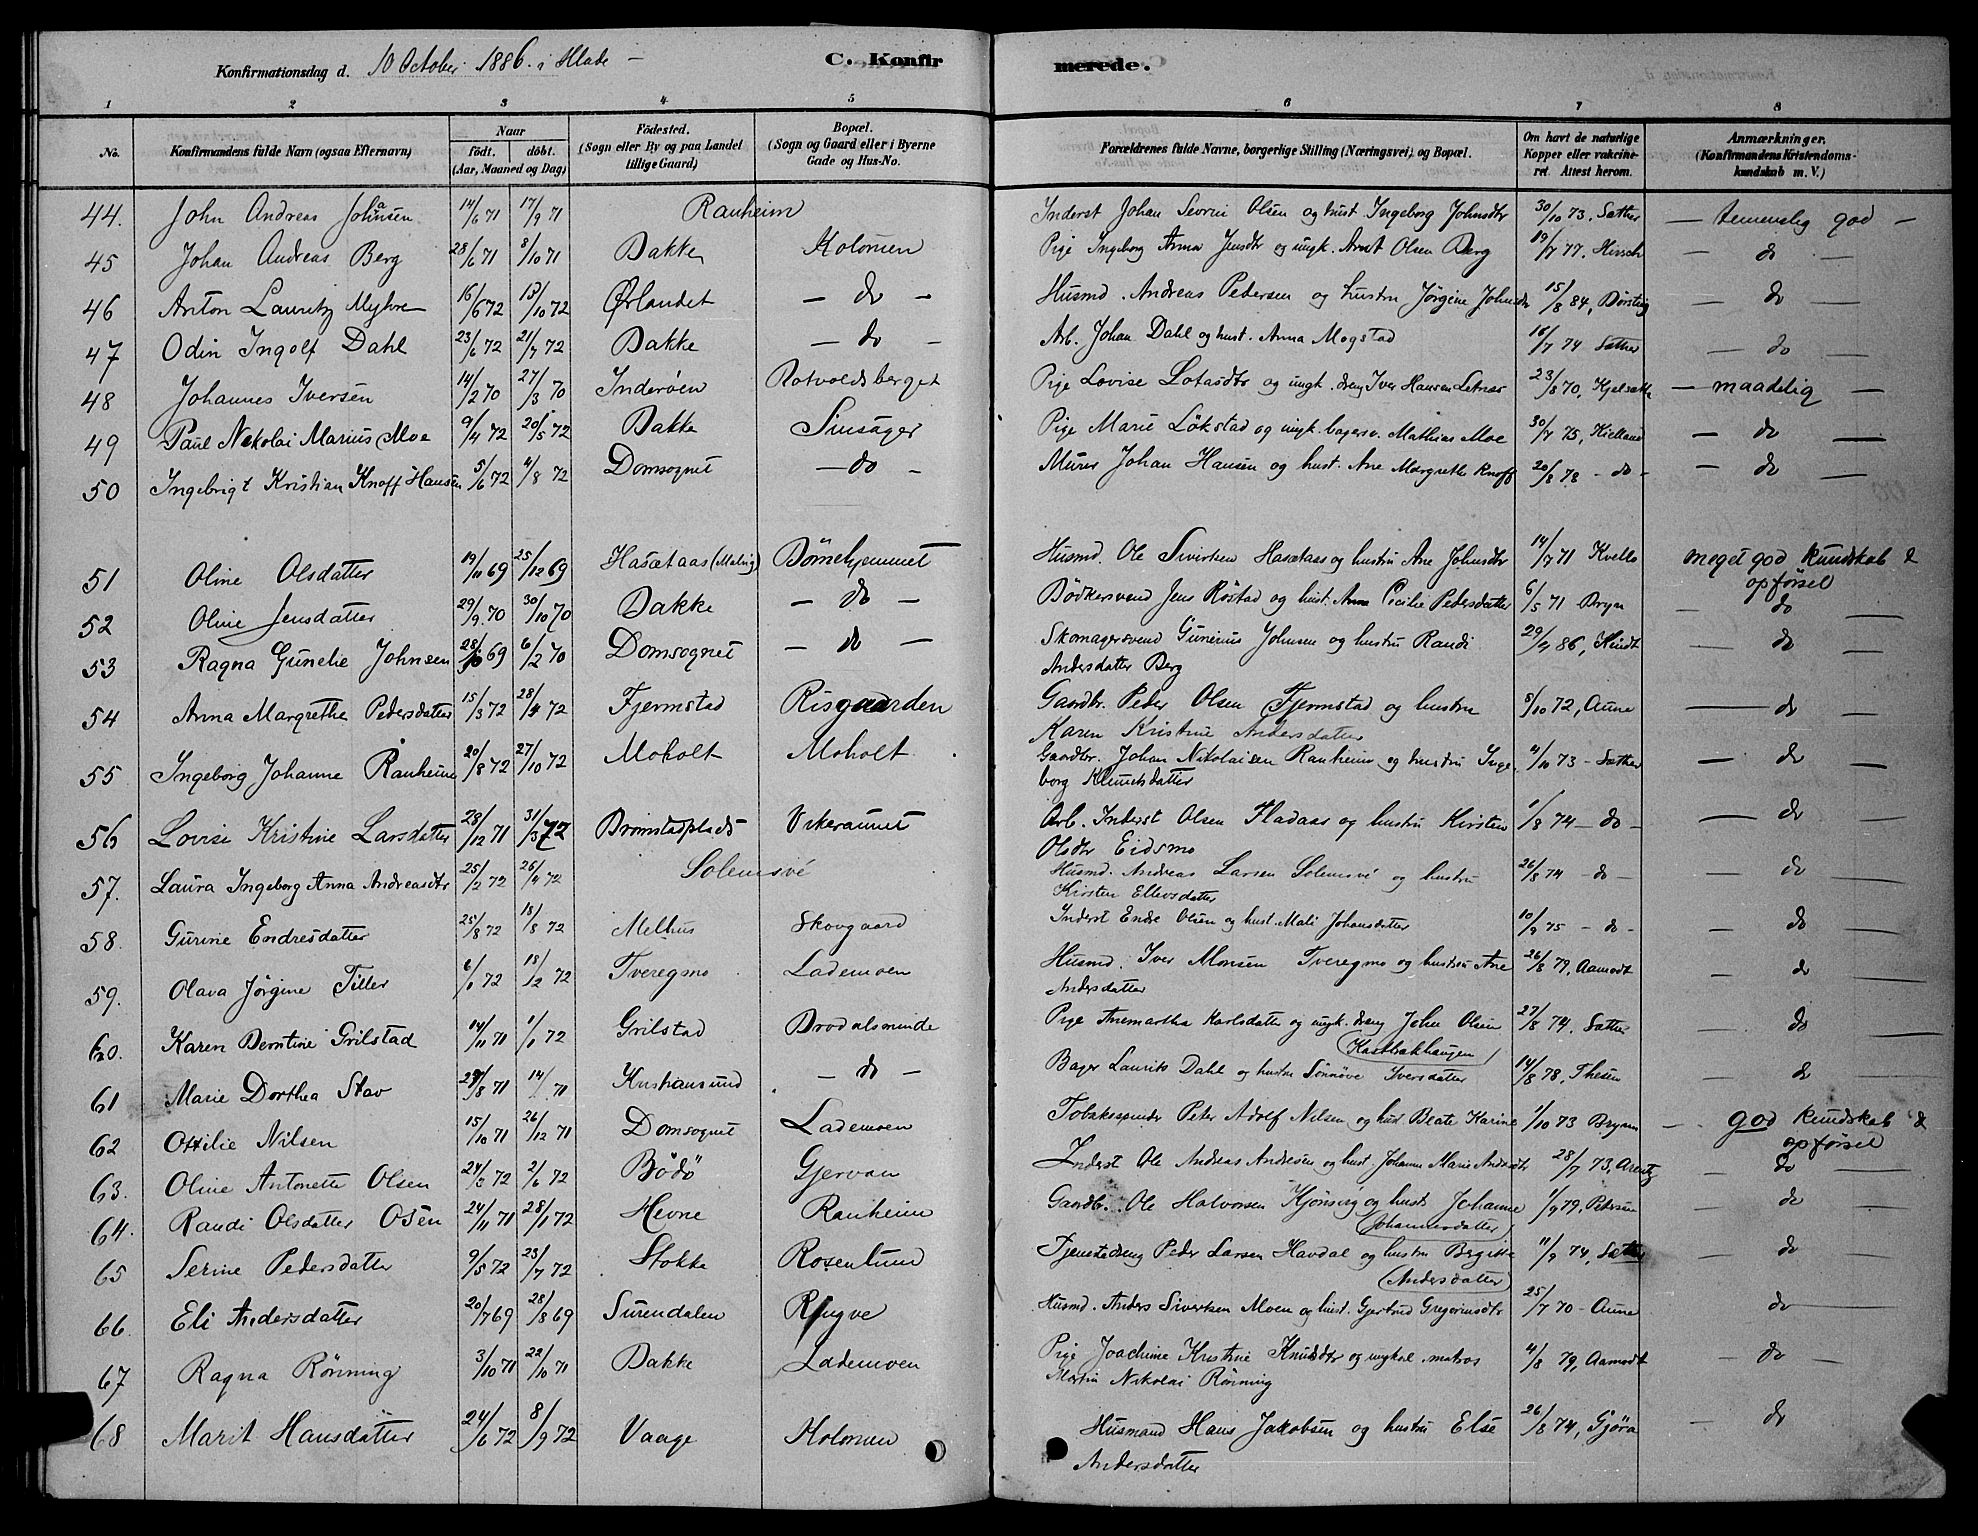 Konfirmationsdag d. 10 October 1886. i Hlade –
C. Konfirmerede.
1 2 3 4 5 6 7 8
No. Konfirmandens fulde Navn (ogsaa Efternavn) Naar født. døbt. (Aar, Maaned og Dag) Födested. (Sogn eller By og paa Landet tillige Gaard) Bopæl. (Sogn og Gaard eller i Byerne Gade og Hus-No. Forældrenes fulde Navne, borgerlige Stilling (Næringsvei) og Bopæl. Om havt de naturlige Kopper eller vakcineret. Attest herom. Anmærkninger. (Konfirmandens Kristendomskundskab m. V.)
44. John Andreas Johnsen 14/6 71 17/9 71 Ranheim Inderst Johan Sevrin Olsen og hust Ingeborg Johnsdtr 30/10 73, Sæther – temmelig god –
45 Johan Andreas Berg 28/6 71 8/10 71 Bakke Kolonien Pige Ingeborg Anna Jensdtr og ungk. Arnt Olsen Berg 19/7 77. Hirsch – do –
46 Anton Lauritz Myhre 16/6 72 13/10 72 Ørlandet – do – Husmd. Andreas Pedersen og hustru Jørgine Johnsdr 15/8 84, Børstig – do –
47 Odin Ingolf Dahl 23/6 72 21/7 72 Bakke – do – Arb. Johan Dahl og hust. Anna Mogstad 16/7 74 Sæther – do –
48 Johannes Iversen 14/2 70 27/3 70 Inderöen Rotvoldsberget Pige Lovise Lotasdtr og ungk. dreng Iver Hansen Letnes 23/8 70, Kjelseth – maadelig –
49 Paul Nikolai Marius Moe 9/4 72 20/5 72 Bakke Sinsager Pige Marie Lökstad og ungk. bagersv. Mathias Moe 30/7 75, Kielland – do –
50 Ingebrigt Kristian Knoff Hansen 5/6 72 4/8 72 Domsognet – do – Murer Johan Hansen og hust. Ane Margrethe Knoff 20/8 78 – do – – do –
51 Oline Olsdatter 19/11 69 25/12 69 Hasetaas (Malvig) Börnehjemmet Husmd. Ole Sivertsen Hasetaas og hustru Ane Johnsdtr 14/7 71 Kvello meget god kundskab & opförsel
52 Oline Jensdatter 29/9 70 30/10 70 Bakke – do – Bödkersvend Jens Röstad og hust. Cicilie Pedersdatter 6/5 71 Bryn – do –
53 Ragna Gunelie Johnsen 28/10 69 6/2 70 Domsognet – do – Skomagersvend Gunerius Johnsen og hustru Randi Andersdatter Berg 29/4 86, Hindt – do –
54 Anna Margrethe Pedersdatter 15/3 72 28/4 72 Fjermstad Risgaarden Gaardbr. Peder Olsen Fjermstad og hustru Karen Kristine Andersdatter 8/10 72, Aune – do –
55 Ingeborg Johanne Ranheim 20/8 72 27/10 72 Moholt Moholt Gaardbr. Johan Nikolaisen Ranheim og hustru Ingeborg Klemetsdatter 4/10 73 – Sæther – do –
56 Lovise Kristine Larsdatter 28/12 71 31/3 72 Bromstadplads Vikeraunet Arb. Inderst Olsen Fladaas og hustru Kirsten Olsdtr Eidsmo 1/8 74 – do – – do –
57. Laura Ingeborg Anna Andreasdtr 25/2 72 26/4 72 Solemsvé Husmd. Andreas Larsen Solemsvé og hustru Kirsten Ellevsdatter 26/8 74 – do – do
58. Gurine Endresdatter 25/8 72 18/8 72 Melhus Skovgaard Inderst Endre Olsen og hust. Mali Johansdatter 10/9 75 – do – – do –
59. Olava Jørgine Tiller 6/1 72 18/2 72 Tveregmo Lademoen Husmd. Iver Monsen Tveregmo og hustru Ane Andersdatter 26/8 79, Aamodt – do –
60. Karen Berntine Grilstad 14/11 71 1/1 72 Grilstad Brodalsminde Pige Anemartha Karlsdatter og ungk. dreng John Olsen (Kastbrækhaugen) 27/8 74. Sæther – do –
61 Marie Dorthea Stav 29/8 71 14/ 71 Kristiansund – do – Bager Laurits Dahl og hustru Sønnöve Iversdatter 14/8 78, Thesen – do –
62 Ottilie Nilsen 15/10 71 26/12 71 Domsognet Lademoen Tobakspinder Peter Adolf Nilsen og hust Beate Karine 1/10 73 Brynn – god kundskab & opförsel
63. Oline Antonette Olsen 24/2 72 2/6 72 Bödö Gjervan Inderst Ole Andreas Andresen og hust. Johanne Marie Andersdtr 28/7 73, Arentz – do –
64. Randi Olsdatter Osen 24/11 71 28/1 72 Hevne Ranheim Gaardbr. Ole Halvorsen Kjönsvig og hustr Johanne (Johannesdatter) 1/9 79, Petersen – do –
65 Serine Pedersdatter 9/5 72 23/7 72 Stokke Rosenlund Tjenestedreng Peder Larsen Havdal og hustru Bergitte (Andersdatter) 11/9 74, Sæther – do –
66. Eli Andersdatter 20/7 69 28/8 69 Surendalen Ringve Husmd. Anders Sivertsen Moen og hust. Gjertrud Gregoriusdtr 25/7 70 – Aune do
67 Ragna Rönning 3/10 71 22/10 71 Bakke Lademoen Pige Joachime Kristine Knudsdtr og ungkal. matros Martin Nikolai Rönning 4/8 79, Aamodt – do –
68 Marit Hansdatter 24/6 72 8/9 72 Vaage Kolonien Husmand Hans Jakobsen og hustru Else Andersdatter 26/8 74, Gjöra – do –